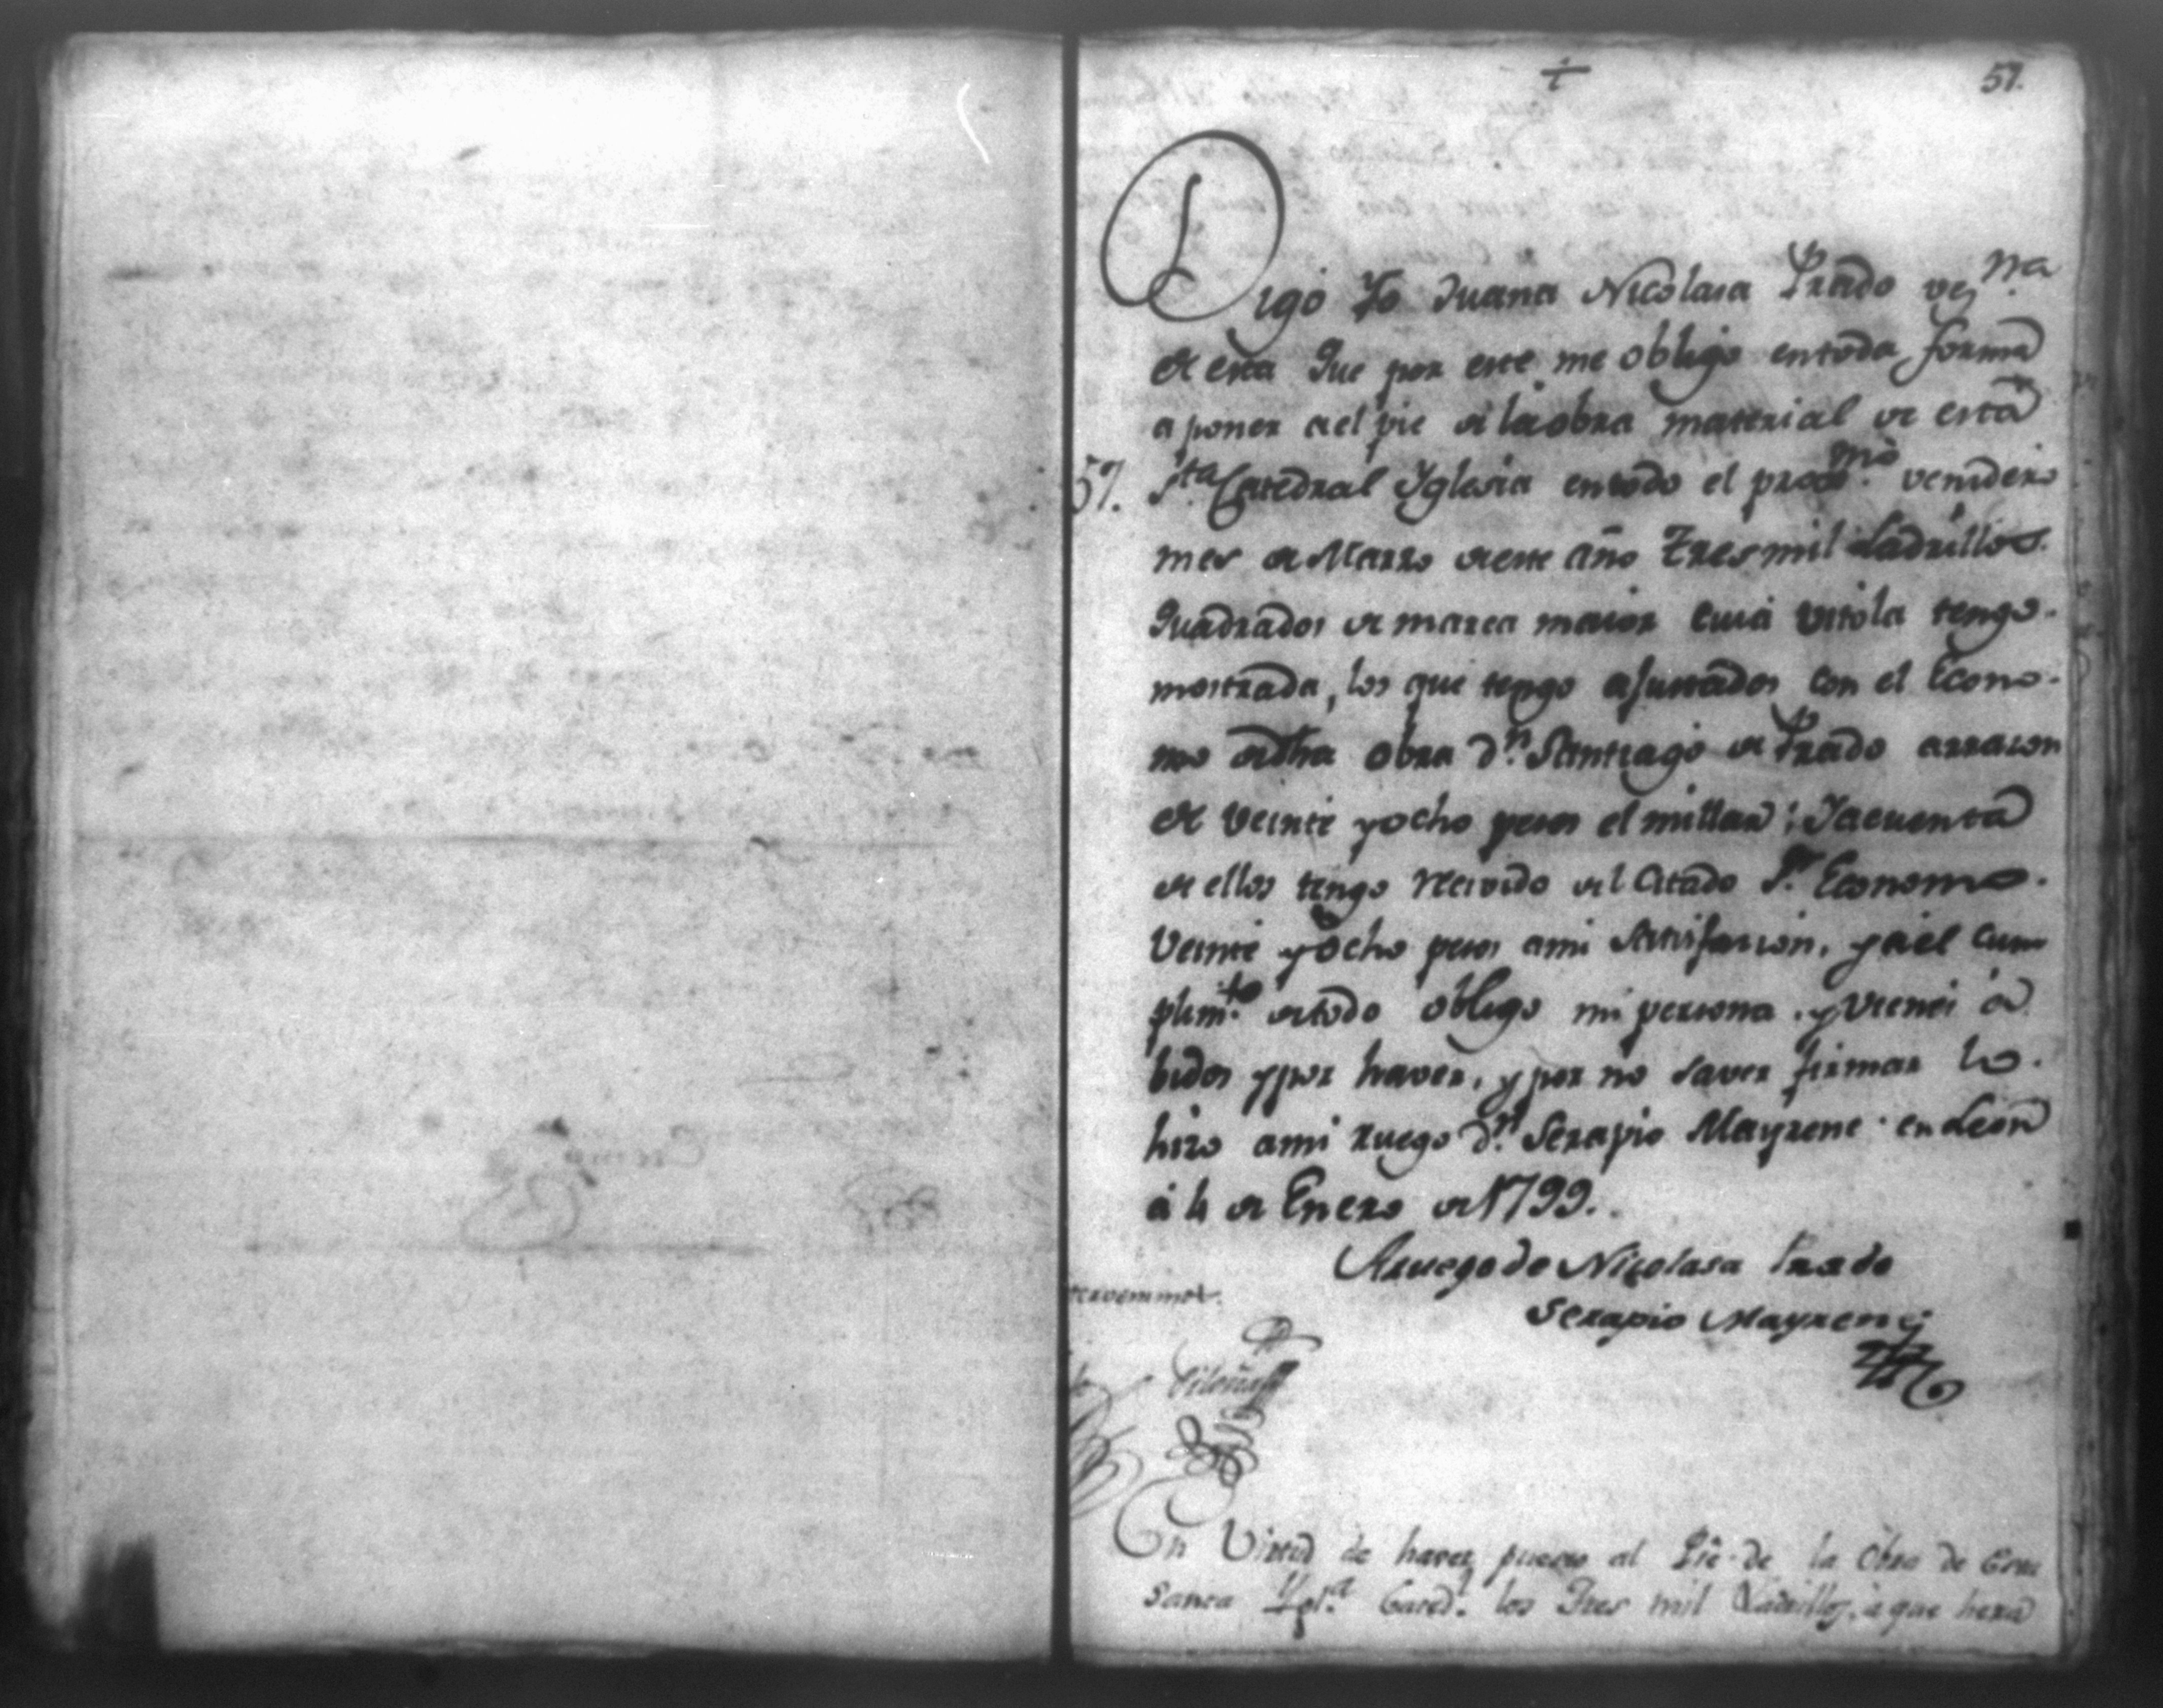 57.
Digo Yo Juana Nicolasa Prado vezna
de esta Que por este me obligo entoda forma
a poner ael pie de laobra material de esta
57. Sta Catedral Yglesia entodo el proxmo. venidero
mes de Marzo deeste año Tres mil Ladrillos.
Quadrados de marca maior cuia vitola tengo.
mostrada, los que tengo ajustados con el Econo.
mo dedha obra Dn. Santiago de Prado arrazon
de veinte yocho pesos el millar; Yacuenta
de ellos tengo recivido del Citado Sr. Economo.
Veinte yocho pesos ami Satisfazion, yael cum
plimto. detodo obligo mi persona, y vienes a
bidos ypor haver, y por no saver firmar lo.
hizo ami ruego Dn. Serapio Mayrene. en Leon
á 4 de Enero de 1799.
Aruegode Nicolasa Prado
Serapio Mayrene
En Virtud de haver puesto al Pie de la Obra de Esta
Santa Ygla. Cated. los Tres mil Ladrillos, à que hera